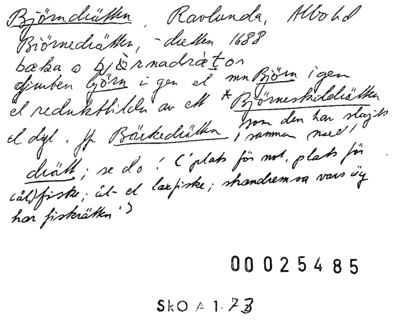 Björndrätten, Ravlunda, Albo hd
Björnedrätten, -dretten 1688
bœka o björnadrätor
djuren björn i gen el mn Björn i gen
el reduktbilda av ett *Björneskiddrätten
el dyl. Jfr Bäckedrätten som den har slagits
drätt; se do! ('plats för not, plats för samman med!
(ål)fiske; ål- el laxfiske; strandremsa vars äg
har fiskrätten')
00025485
SkO A 1.73